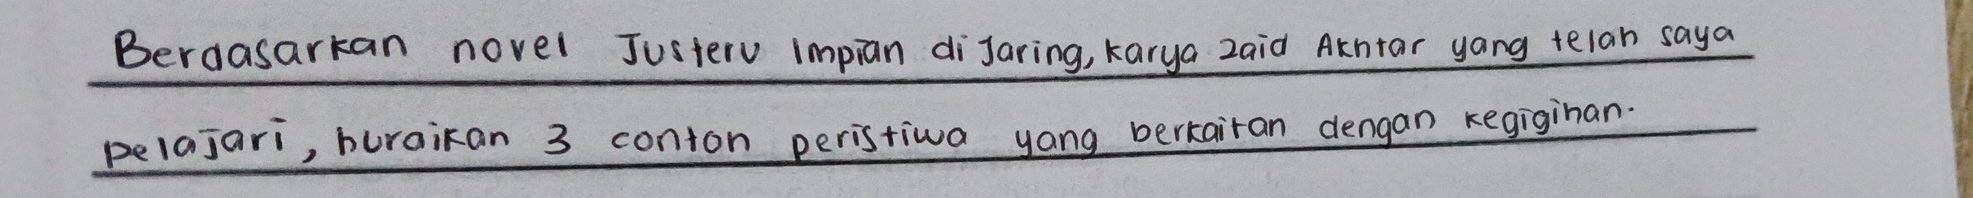 Berdasarkan novel Justeru Impian di Jaring, karya Zaid Akhtar yang telah saya
pelajari, huraikan 3 contoh peristiwa yang berkaitan dengan kegigihan.